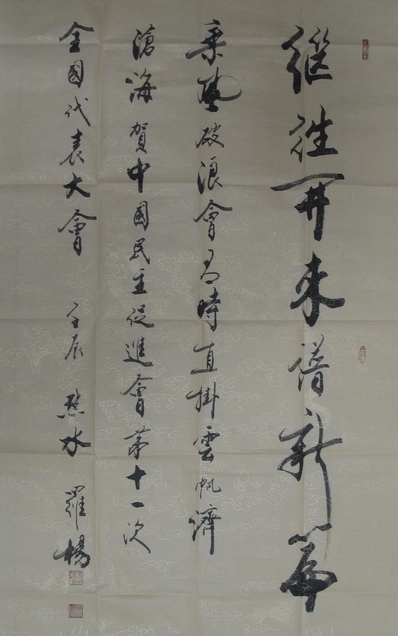 继往开来谱新篇
乘風破浪會有時直掛雲帆濟
滄海賀中國民主促進會第十一次
全國代表大會 壬辰 水 羅楊